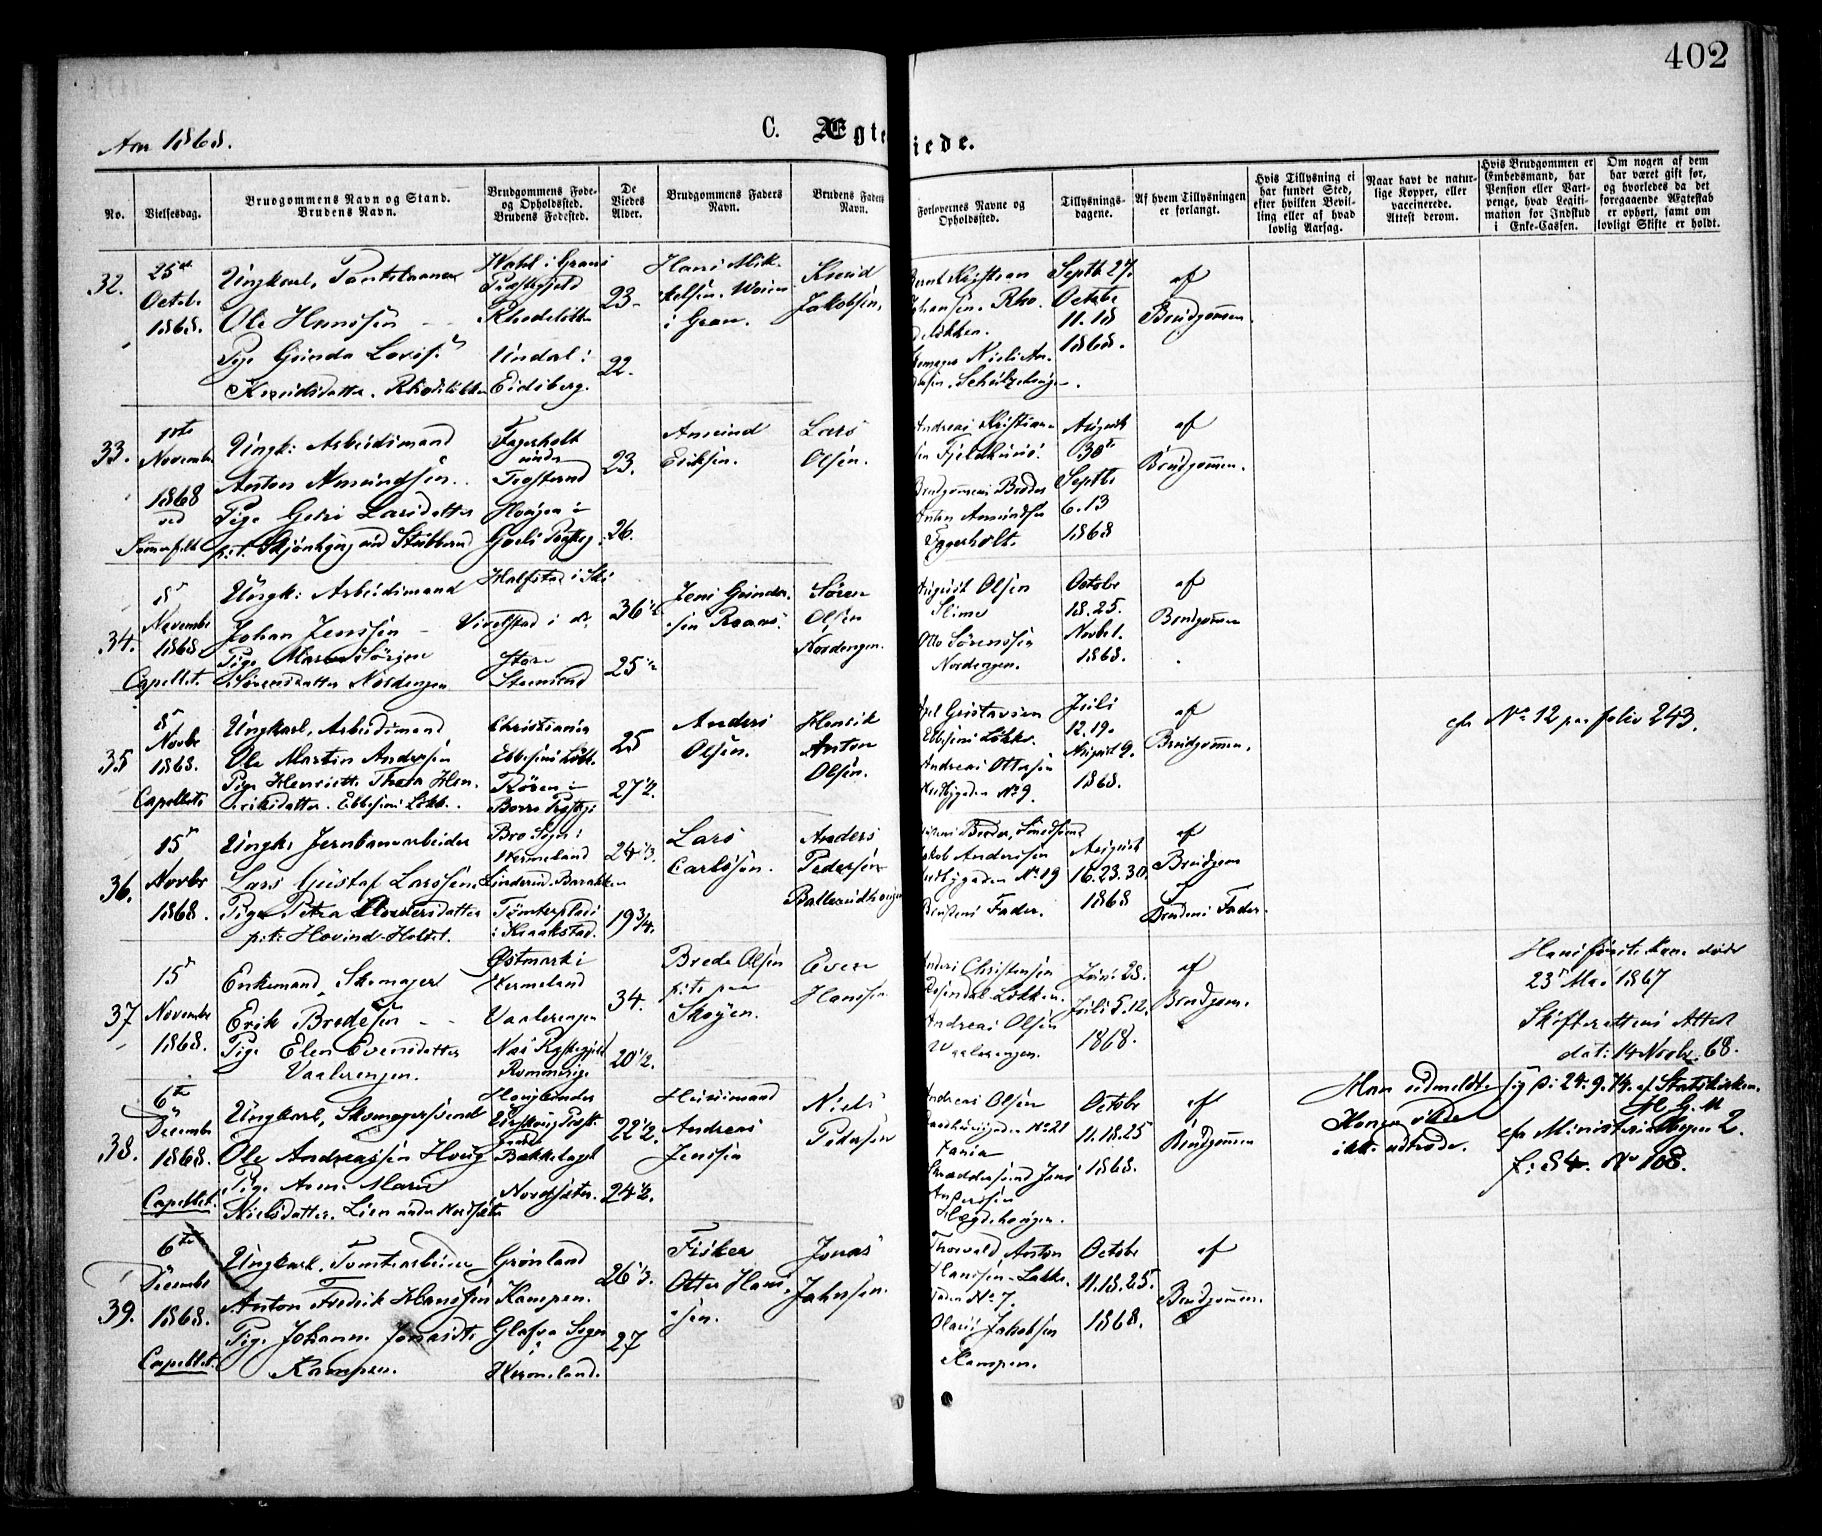 402
Aar 1868.
C. Ægte
iede.
No.
Vielsesdag.
Brudgommens Navn og Stand.
Brudens Navn.
Brudgommens Føde-
og Opholdssted.
Brudens Fødested.
De
Viedes
Alder.
Brudgommens Faders
Navn.
Brudens Faders
Navn.
Forlovernes Navne og
Opholdssted.
Tillysnings-
dagene.
Af hvem Tillysningen
er forlangt.
Hvis Tillysning ei
har fundet Sted,
efter hvilken Bevil-
ling eller af hvad
lovlig Aarsag.
Naar havt de natur-
lige Kopper, eller
vaccinerede.
Attest derom.
Hvis Brudgommen er
Embedsmand, har
Pension eller Vart-
penge, hvad Legiti-
mation for Indskud
i Enke-Cassen.
Om nogen af dem
har været gift før,
og hvorledes da det
foregaaende Ægteskab
er ophørt, samt om
lovligt Skifte er holdt.
32.
25de
Octobr
1868.
Ungkarl,
Ole Hanssen
Pige Gunda Lovise
Knudsdatter. Rhodeløkken
i Grans
Præstegjeld
Rhodeløkken
Undal i
Eidsberg.
23
22.
Hans Mik-
kelsen,
i Gran.
Knud
Jakobsen,
Bernt Kristian
Johansen. Rho-
deløkken.
Skomager Niels An-
Septb 27.
Octobr
11. 18
1868.
af
Brudgommen.
33.
1ste
Novembr
1868
ved
Ungk: Arbeidsmand
Anton Amundsen.
Pige Larsdatter
p.t. Skjønhaug ved Stubberud
Fagerholt
under
Trosterud
Haugen i
23.
26.
Amund
Eriksen.
Lars
Olsen.
Andreas Kristian-
sen Fjeldhuus
Brudgommens Broder
Anton Amundsen
Fagerholt.
August
30te
Septbr
6. 13
1868
af
Brudgommen.
34.
8de
Novembr
1868
Capellet.
Ungk: Arbeidsmand
Johan Jenssen
Pige Maren Sørgine
Sørensdatter Nordengen
Halfstad i Ski
Store
Steensrud
36 1/2
25 1/2
Jens Gunder-
sen
Søren
Olsen
Nordengen.
August Olsen
Otto Sørenssen
Nordengen.
Octobr
18. 25.
Novbr 1.
1868.
af
Brudgommen
35
8de
Novbr
1868.
Capellet
Ungkarl, Arbeidsmand
Ole Martin Andersen
Pige Henriette Thora Hen-
riksdatter. Ebbesens Løkke.
Christiania
Ebbesens Løkke.
i
Borre Præstegj
25
27 1/2.
Anders
Olsen.
Henrik
Anton
Olsen.
Axel Gustavsen
Ebbesens Løkke.
Andreas Ottesen
No 9.
Juli
12. 19.
August 9.
1868.
af
Brudgommen.
cfr No 12 paa folio 243.
36.
15de
Novbr
1868.
Ungk: Jernbanearbeider
Lars Gustaf Larssen
Pige Petra Andersdatter
p.t. Hovind-Holtet.
Bro Sogn i
Wermeland
Linderud-Barakken
i Kraakstad.
24 1/3.
19 3/4.
Lars
Carlssen.
Anders
Pedersen
Brudens Broder,
Jakob Anderssen
No 19
Brudens Fader.
August
16. 23. 30.
1868
af
Brudgom
&
Brudens Fader.
37
15de
Novembr
1868.
Enkemand, Skomager
Erik Bredesen
Pige Elen Evensdatter
Vaalerengen.
Østmark i
Wermeland
Vaalerengen
Næs Præstegjeld
Romerige
34.
20 1/2.
Brede Olsen
p.t. paa
Skøyen.
Even
Hanssen
Anders Christensen
Rosendal-Løkken.
Andreas Olsen
Waalerengen.
Juni 28.
Juli 5. 12.
1868.
af
Brudgom.
Hans første Kone døde
23de Mai 1867
Skifterettens Attest
dat: 14 Novbr. 68.
38.
6te
Decembr
1868.
Capellet.
Ungkarl, Skomagersvend
Ole Andreassen Houg
Pige Anne Marie
Nielsdatter. Lien under Nordseter
Bakkelaget
Nordseter.
22 1/2.
24 1/2.
Huusmand
Andreas
Jenssen
Niels
Pedersen
Andreas Olsen
No 21
Skræddersvend Jens
Anderssen
Hegdehaugen.
Octobr
11. 18. 25
1868.
af
Brudgommen
Man udmeldte sig d: 24. 9. 74. af Statskirken.
Konen vilde
ikke udtræde.
cfr Ministerialbogen 2.
f: 84. No 108.
39.
6te
Decembr
1868.
Capellet.
Ungkarl, Tomtearbeider
Anton Fredrik Hanssen
Pige Johanne Jonasdtr
Kampen.
Grønland
Kampen.
Glafva Sogn
i
Wermeland.
26 1/3.
27
Fisker
Otter Hans-
sen.
Jonas
Jahnsen.
Thorvald Anton
Hanssen-Lakke-
gaden No 7.
Olaus Jakobsen
Kampen.
Octobr
11. 18. 25.
1868.
af
Brudgommen.